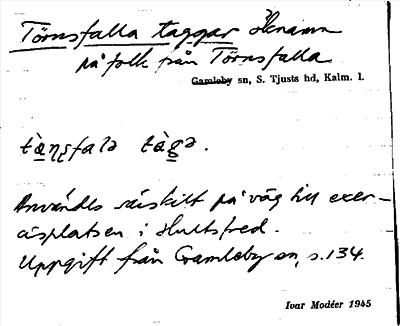 Törnsfalla taggar Öknamn
på folk från Törnsfalla
Gamleby sn, S. Tjusts hd, Kalm. l.
Användes särskilt på väg till exer-
cisplatsen i Hultsfred.
Uppgift från Gamleby sn, s. 134.
Ivar Modéer 1945